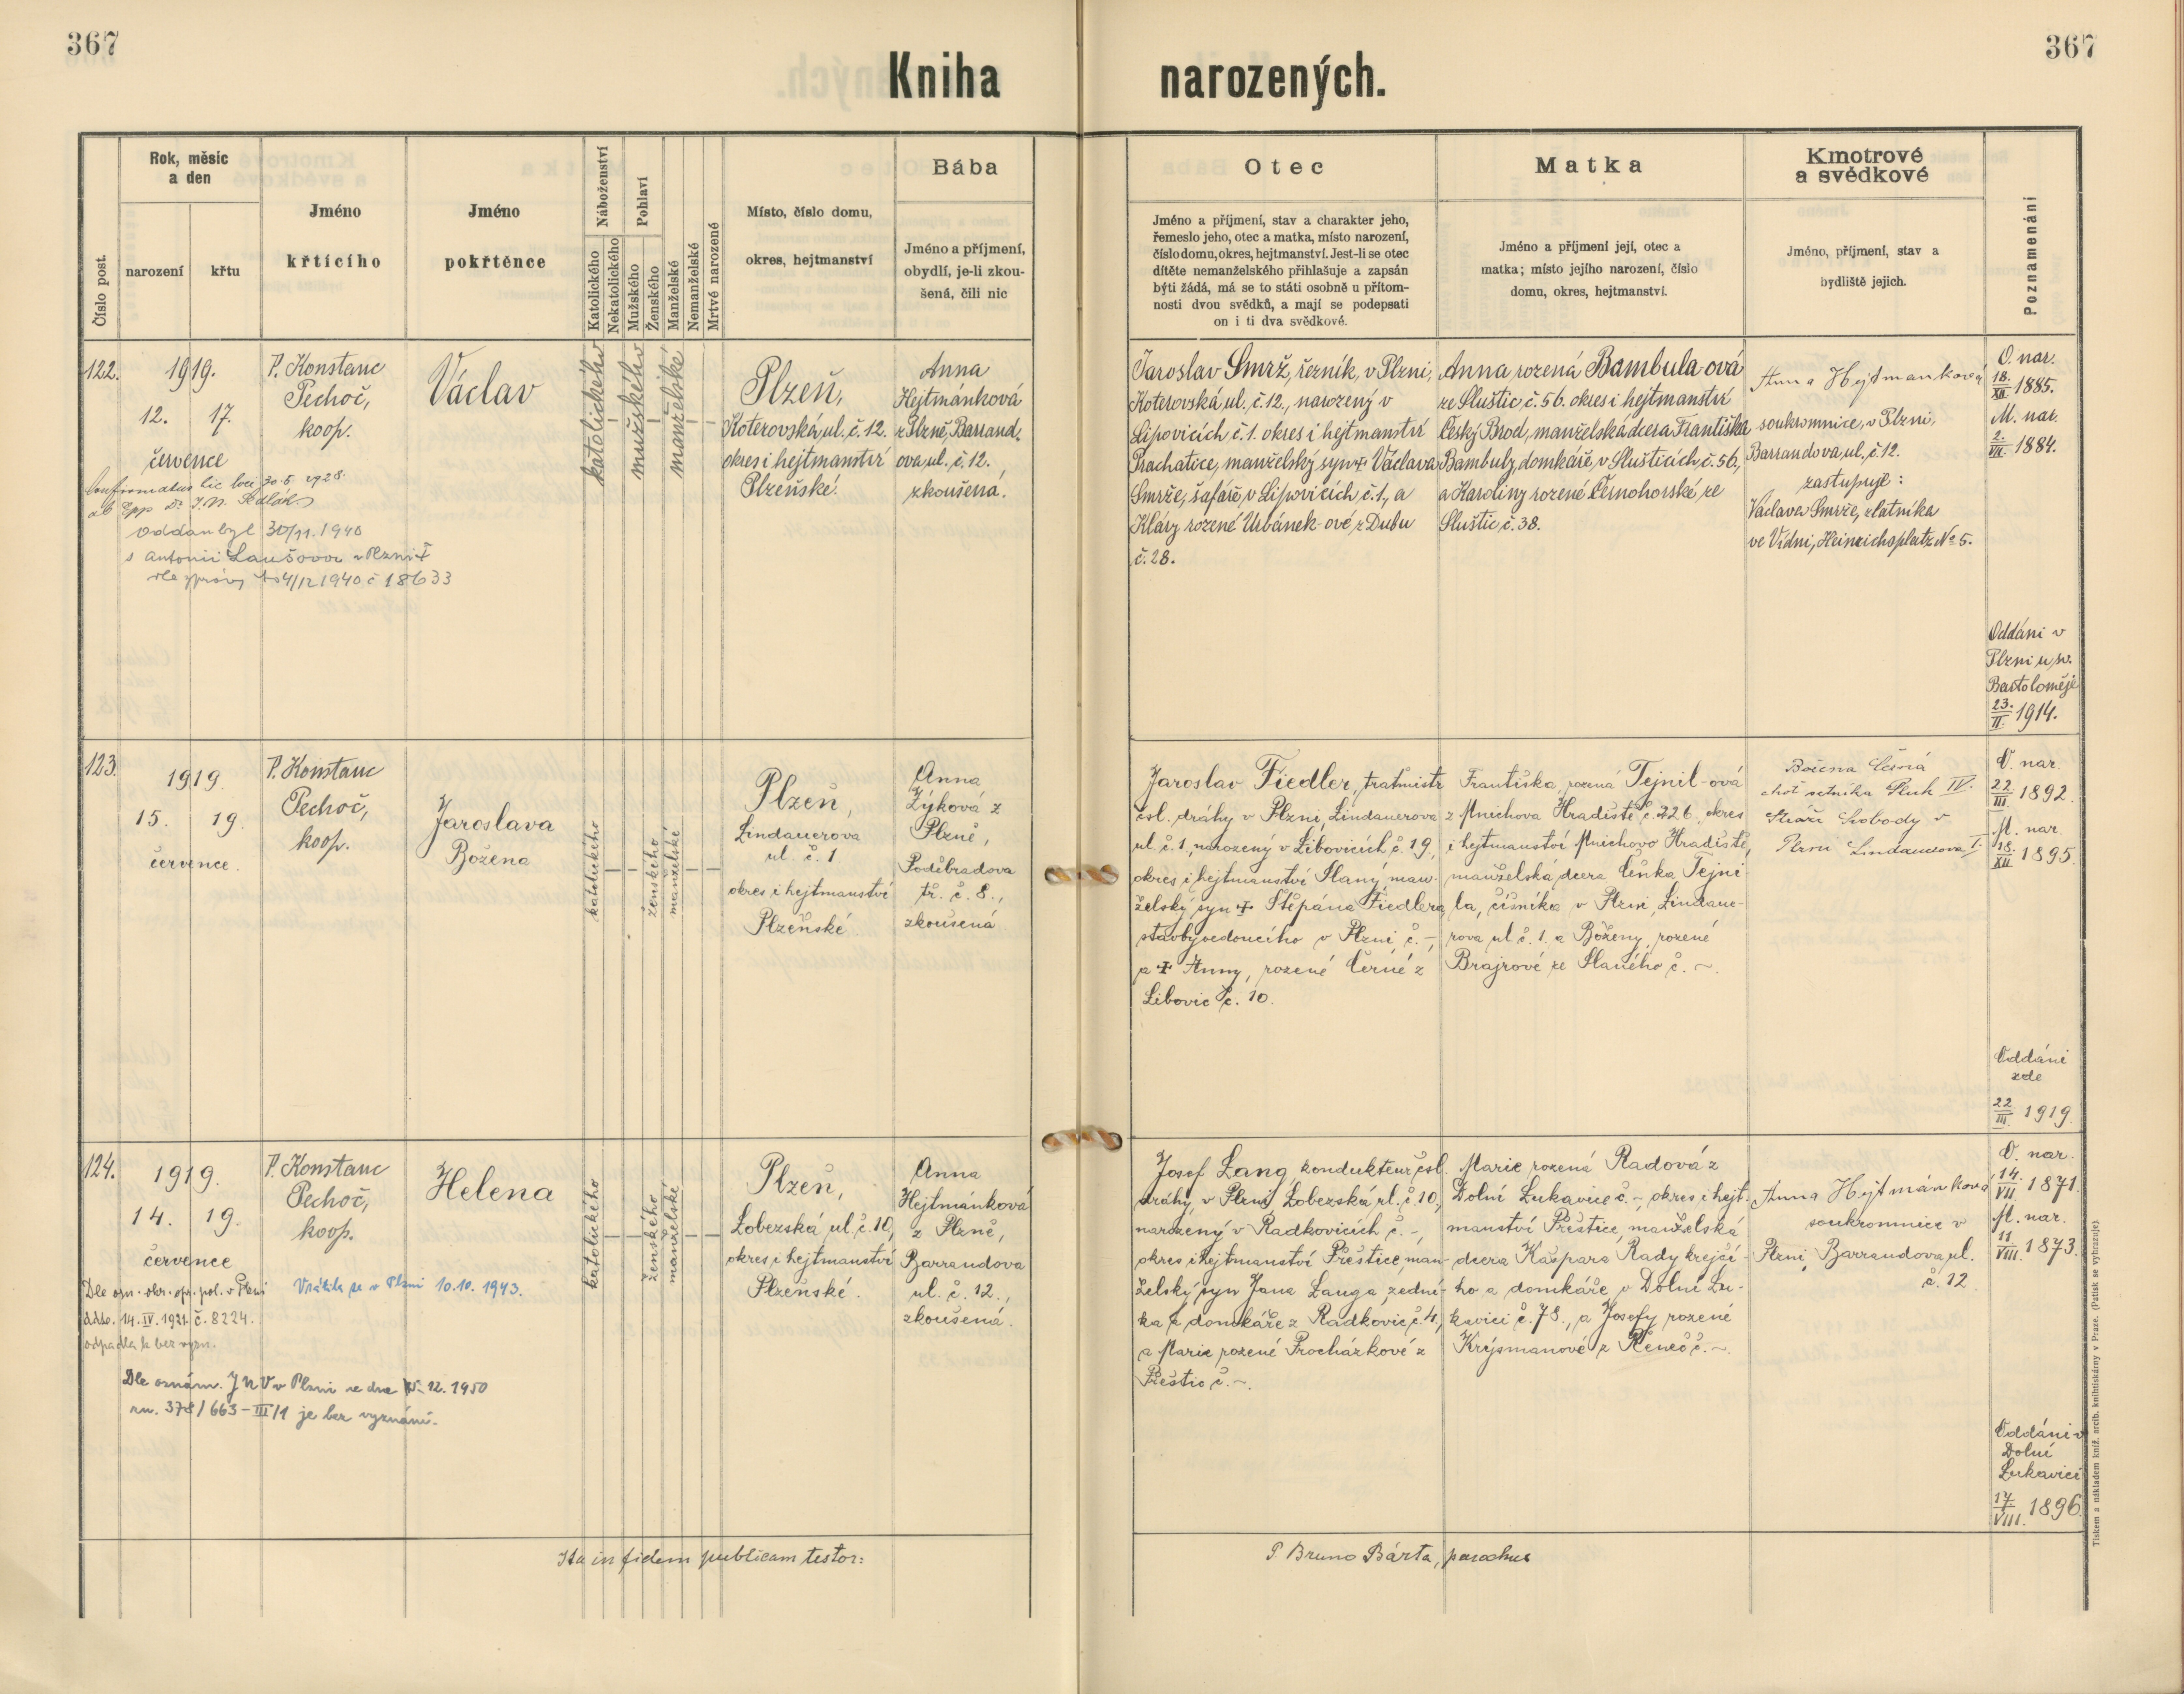 367
367
Kniha narozených.
Číslo post.
Rok, měsíc
a den
narození
křtu
Jméno
křtícího
Jméno
pokřtěnce
Náboženství
Katolického
Nekatolického
Pohlaví
Mužského
Ženského
Manželské
Nemanželské
Mrtvé narozené
Místo, číslo domu,
okres, hejtmanství
Bába
Jméno a příjmení,
obydlí, je-li zkou-
šená, čili nic
Otec
Jméno a příjmení, stav a charakter jeho,
řemeslo jeho, otec a matka, místo narození,
číslo domu, okres, hejtmanství. Jest-li se otec
dítěte nemanželského přihlašuje a zapsán
býti žádá, má se to státi osobně u přítom-
nosti dvou svědků, a mají se podepsati
on i ti dva svědkové.
Matka
Jméno a příjmení její, otec a
matka; místo jejího narození, číslo
domu, okres, hejtmanství.
Kmotrové
a svědkové
Jméno, příjmení, stav a
bydliště jejich.
Poznamenání
122.
1919.
12. 17.
července
P. Konstanc
Pechoč,
koop.
Václav
katolického
–
mužského
–
manželské
– –
Plzeň,
Koterovská, ul. č. 12.
okres i hejtmanství
Plzeňské.
Anna
Hejtmánková
z Plzně, Barrand.
ova, ul. č. 12.
zkoušená.
Confirmatus hic loci 30.5 1928.
ab Epp Dr J. N. Sedlák
Oddán byl 30/11. 1940
s Antonií Laušovou v Plzni
dle zprávy 4/12 1940 č 18633
Jaroslav Smrž, řezník, v Plzni,
Koterovská, ul. č. 12., narozený v
Lipovicích č. 1. okres i hejtmanství
Prachatice, manželský syn + Václava
Smrže, šafáře, v Lipovicích č. 1., a
Kláry rozené Urbánek-ové, z Dubu
č. 28.
Anna rozená Bambula-ová
ze Sluštic, č. 56. okres i hejtmanství
Český Brod, manželská dcera Františka
Bambuly, domkáře, v Slušticích, č. 56.,
a Karoliny rozené Černohorské, ze
Sluštic, č. 38.
Anna Hejtmanková
soukromnice, v Plzni,
Barrandova, ul. č. 12.
zastupuje:
Václava Smrže, zlatníka
ve Vídni, Heinrichsplatz No 5.
O. nar.
18./XII. 1885.
M. nar.
2./VII. 1884.
Oddáni v
Plzni u sv.
Bartoloměje
23./II. 1914.
123.
1919.
15. 19.
července.
P. Konstanc
Pechoč,
koop.
Jaroslava
Božena
katolického
– –
ženského
manželské
– –
Plzeň,
Lindauerova
ul. č. 1
okres i hejtmanství
Plzeňské.
Anna
Zýková z
Plzně,
Poděbradova
tř. č. 8.,
zkoušená
Jaroslav Fiedler, tratmistr
čsl. dráhy v Plzni Lindauerova
ul. č. 1, narozený v Libovicích č. 19.,
okres i hejtmanství Slaný, man-
želský syn + Štěpána Fiedlera
stavbyvedoucího v Plzni č. –,
a + Anny, rozené Černé z
Libovic č. 10.
Františka, rozená Tejnil-ová
z Mnichova Hradiště č. 226, okres
i hejtmanství Mnichovo Hradiště,
manželská dcera Čeňka Tejni-
la, číšníka v Plzni, Lindaue-
rova ul. č. 1. a Boženy, rozené
Brajrové ze Slaného č. –.
Božena Černá
choť setníka Pluk IV.
Stráže Svobody v
Plzni Lindauerova 1.
O. nar.
22./III. 1892.
M. nar.
18./XII. 1895.
Oddáni
zde
22/III. 1919.
124.
1919.
14. 19.
července
P. Konstanc
Pechoč,
koop.
Helena
katolického
– –
ženského
manželské
– –
Plzeň,
Lobezská ul. č. 10,
okres i hejtmanství
Plzeňské.
Anna
Hejtmánková
z Plzně,
Barrandova
ul. č. 12.,
zkoušená.
Dle ozn. okr. spr. pol. v Plzni
ddto. 14. IV. 1921. č. 8224.
odpadla k bez vyzn.
Vrátila se v Plzni 10.10. 1943.
Dle oznám. JNV v Plzni ze dne 15. 12. 1950
zn. 378/663–III/1 je bez vyznání.
Josef Lang, kondukteur čsl.
dráhy, v Plzni Lobezská ul. č. 10,
narozený v Radkovicích č. –,
okres i hejtmanství Přeštice, man-
želský syn Jana Langa, zední-
ka a domkáře z Radkovic č. 4.,
a Marie rozené Procházkové z
Přeštic č. –.
Marie rozená Radová z
Dolní Lukavice č. –, okres i hejt-
manství Přeštice, manželská
dcera Kašpara Rady krejčí-
ho a domkáře v Dolní Lu-
kavici č. 78., a Josefy rozené
Krýsmanové z Řeneč č. –.
Anna Hejtmánková
soukromnice v
Plzni, Barrandova, ul.
č. 12
O. nar.
14./VII. 1871.
M. nar.
11/VIII. 1873.
Oddáni v
Dolní
Lukavici
17/VIII. 1896.
Ita in fidem publicam testor:
P. Bruno Bárta, parochus
Tiskem a nákladem kníž. arcib. knihtiskárny v Praze. (Patisk se vyhrazuje).